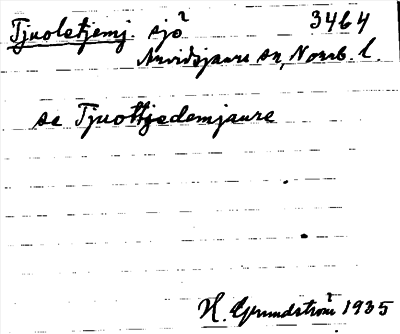 Tjuolstjemj. sjö 3464
Arvidsjaure sn, Norrb. l.
se Tjuottjedemjaure
H. Grundström 1935